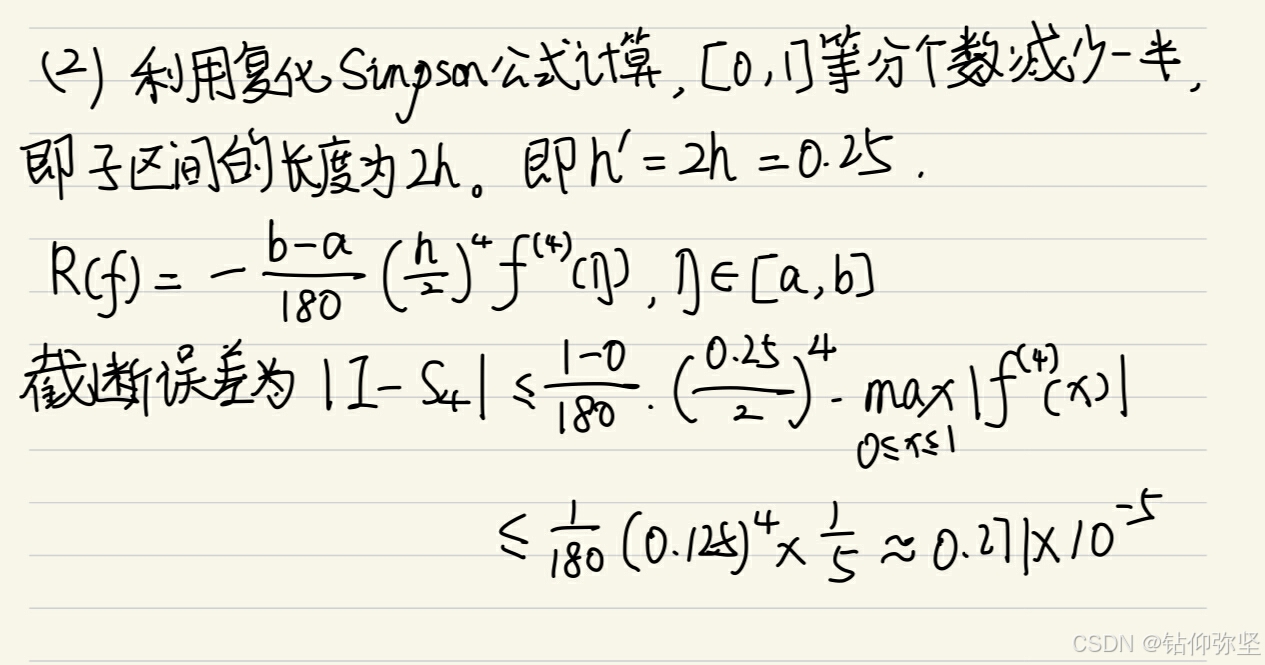 (2) 利用复化Simpson公式计算,[0,1]等分个数减少一半,
即子区间的长度为2h。即h′=2h=0.25.
R(f)=-\frac{b-a}{180}(\frac{h}{2})^4 f^{(4)}(η),η∈[a,b]
截断误差为|I-S_4|≤\frac{1-0}{180}·(\frac{0.25}{2})^4·\max_{0≤x≤1}|f^{(4)}(x)|
≤\frac{1}{180}(0.125)^4×\frac{1}{5}≈0.271×10^{-5}
CSDN @钻仰弥坚